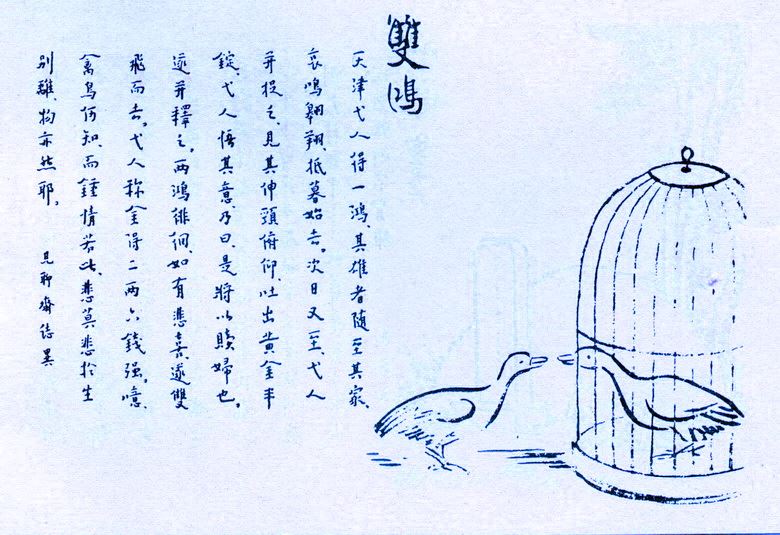 雙鴻
天津弋人得一鴻、其雄者随至其家、
哀鳴翱翔、抵暮始去。次日又至、弋人
并捉之、見其伸頸俯仰、吐出黄金半
錠、弋人悟其意、乃曰、是將以贖婦也。
遂并釋之。兩鴻徘徊、如有悲喜、遂雙
飛而去。弋人称金得二兩六錢强。噫、
禽鳥何知、而鍾情若此、悲莫悲於生
别離、物亦然耶。
見聊齋誌異